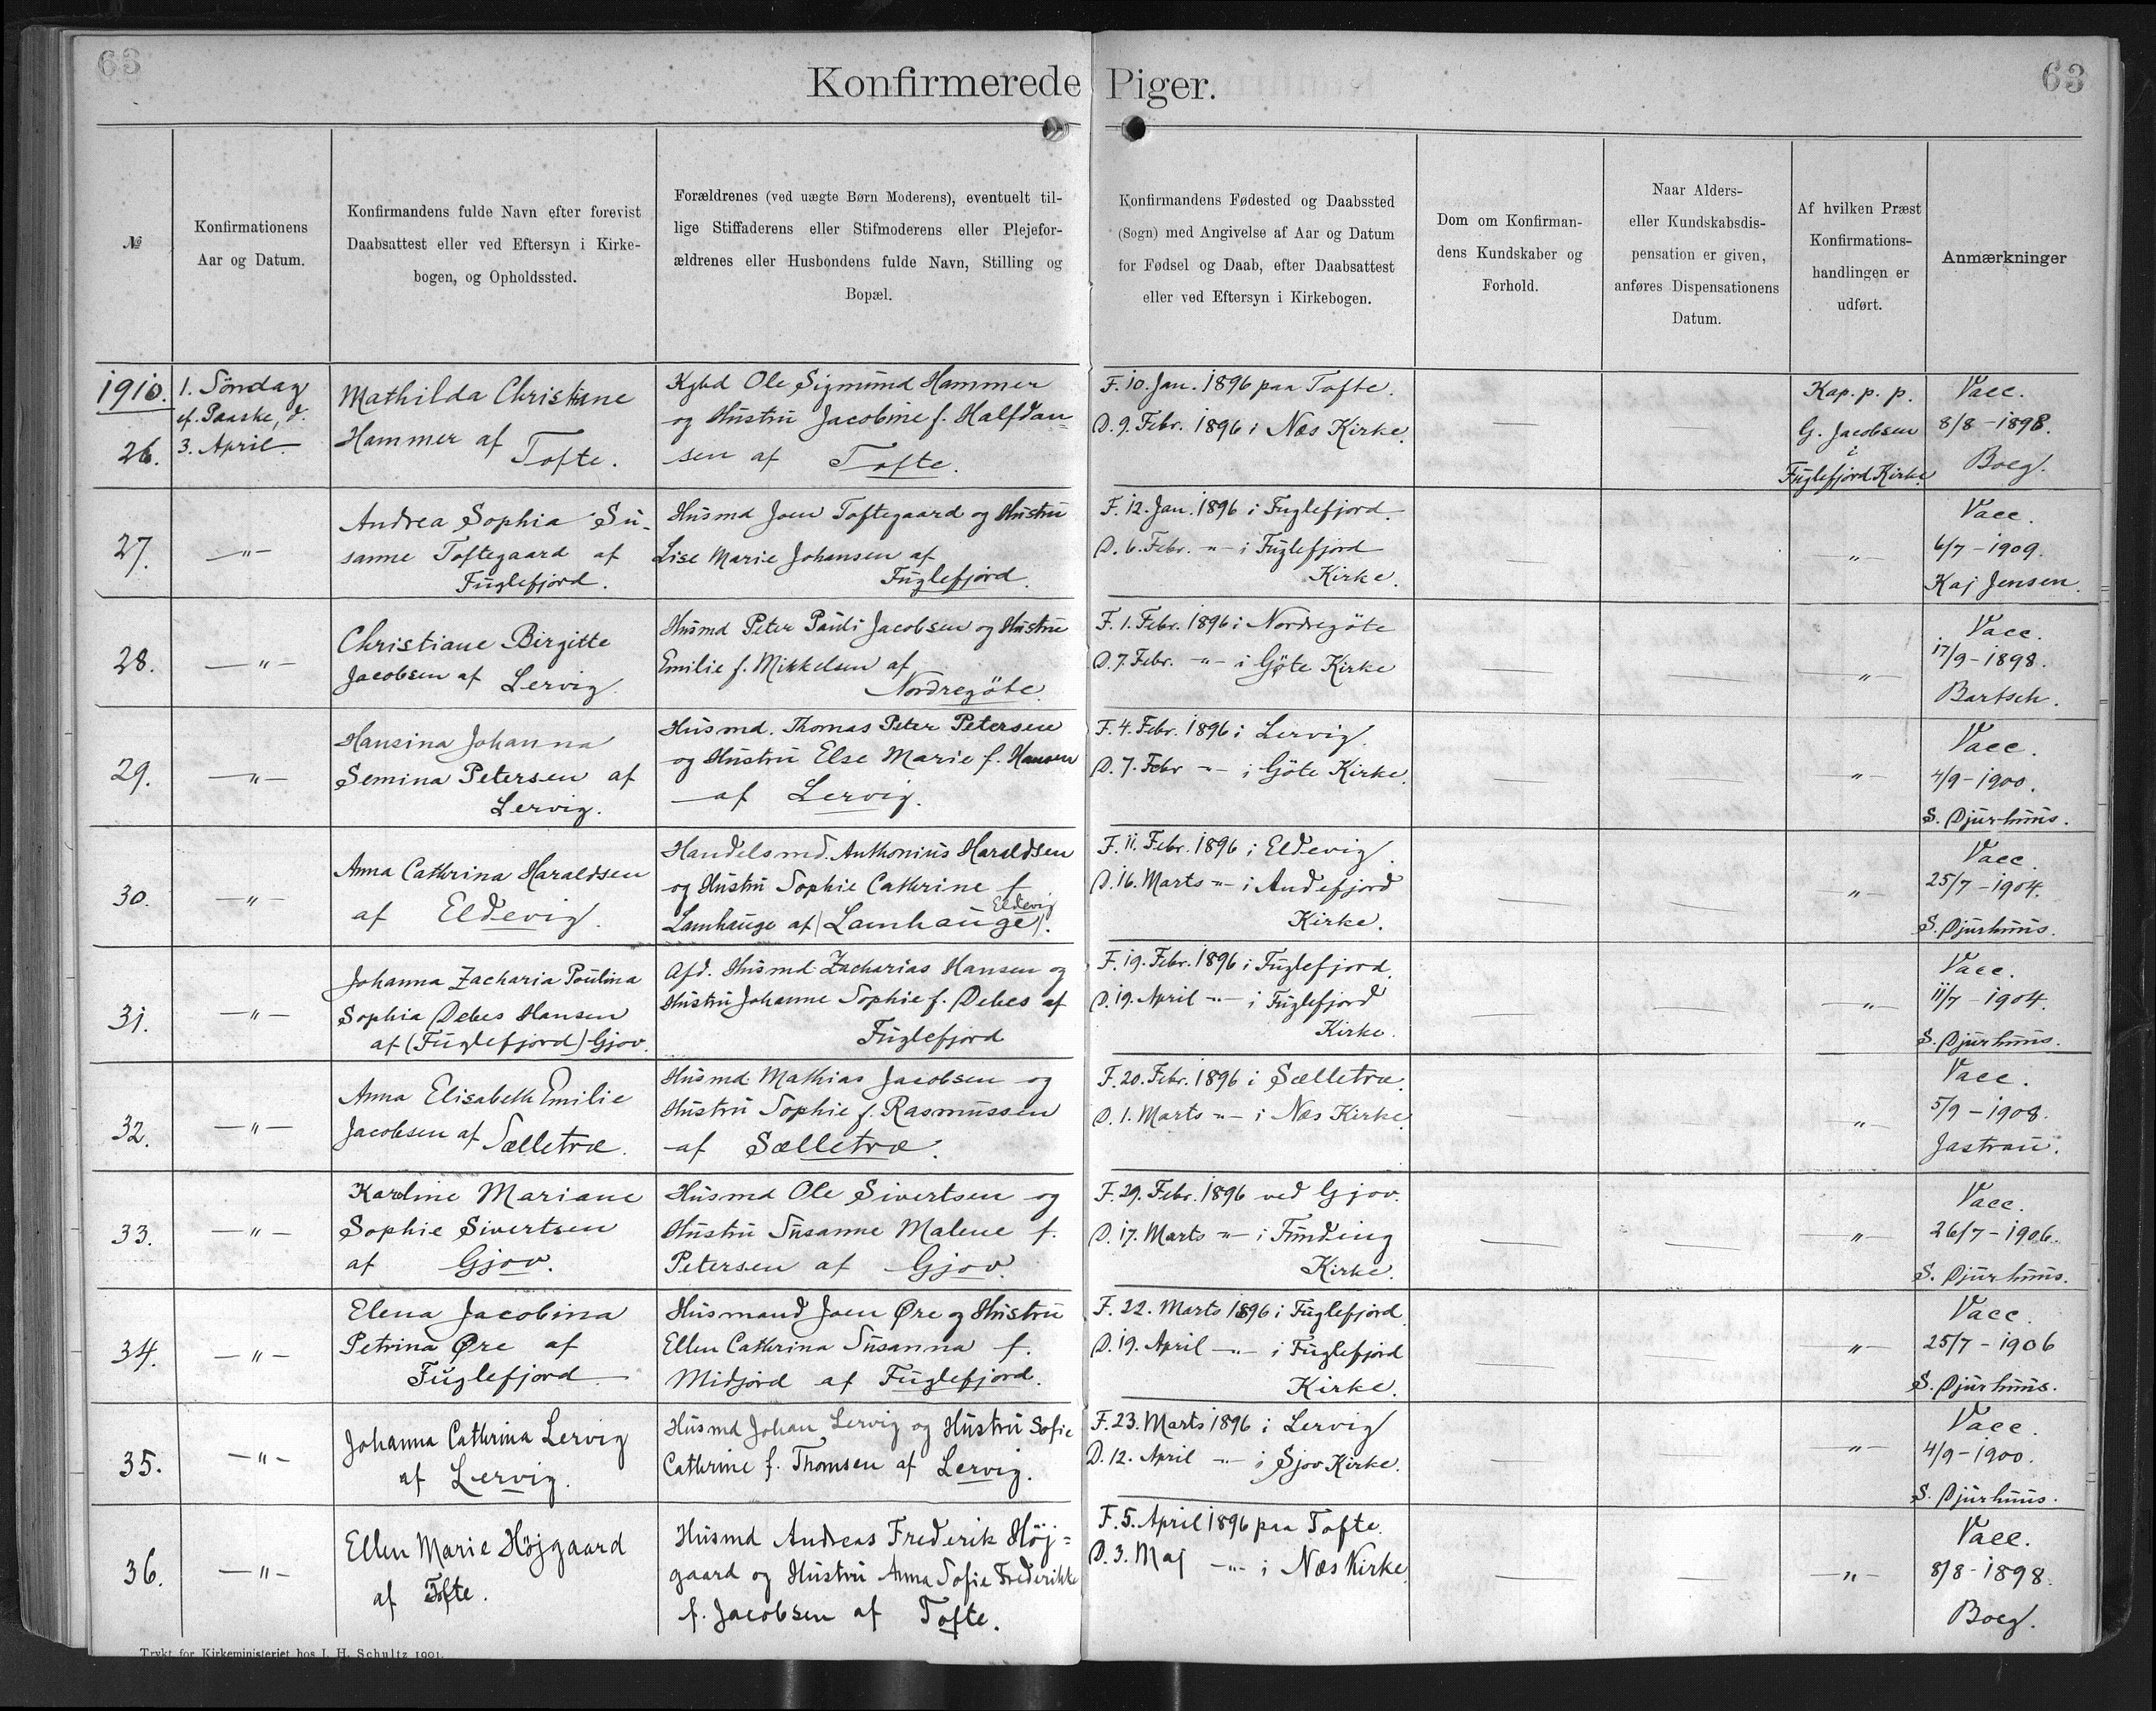 63
63
Konfirmerede Piger.
№
Konfirmationens
Aar og Datum.
Konfirmandens fulde Navn efter forevist
Daabsattest eller ved Eftersyn i Kirke-
bogen, og Opholdssted.
Forældrenes (ved uægte Børn Moderens), eventuelt til-
lige Stiffaderens eller Stifmoderens eller Plejefor-
ældrenes eller Husbondens fulde Navn, Stilling og
Bopæl.
Konfirmandens Fødested og Daabssted
(Sogn) med Angivelse af Aar og Datum
for Fødsel og Daab, efter Daabsattest
eller ved Eftersyn i Kirkebogen.
Dom om Konfirman-
dens Kundskaber og
Forhold.
Naar Alders-
eller Kundskabsdis-
pensation er given,
anføres Dispensationens
Datum.
Af hvilken Præst
Konfirmations-
handlingen er
udført.
Anmærkninger
1910.
26.
1. Söndag
ef. Paaske, d.
3. April
Mathilda Christiane
Hammer af
Tofte.
Kgbd Ole Sigmund Hammer
og Hustru Jacobine f. Halfdan=
sen af Tofte.
F. 10. Jan. 1896 paa Tofte.
D. 9. Febr. 1896 i Næs Kirke.
—
—
Kap. p. p.
G. Jacobsen
i
Fuglefjord Kirke
Vacc.
8/8 - 1898.
Boeg.
27.
—"—
Andrea Sophia Su-
sanne Toftegaard af
Fuglefjord.
Husmd Joen Toftegaard og Hustru
Lise Marie Johansen af
Fuglefjord.
F. 12. Jan. 1896 i Fuglefjord.
D. 6. Febr. -"- i Fuglefjord
Kirke.
—
—
—"—
Vacc.
6/7 - 1909.
Kaj Jensen.
28.
—"—
Christiane Birgitte
Jacobsen af Lervig.
Husmd Peter Pauli Jacobsen og Hustru
Emilie f. Mikkelsen af
Nordregöte.
F. 1. Febr. 1896 i Nordregöte
D. 7. Febr. -"- i Göte Kirke
—
—
—"—
Vacc.
17/9 - 1898.
Bartsch.
29.
—"—
Hansina Johanna
Semina Petersen af
Lervig.
Husmd. Thomas Peter Petersen
og Hustru Else Marie f. Hansen
af Lervig.
F. 4. Febr. 1896 i Lervig.
D. 7. Febr -"- i Göte Kirke.
—
—
"—
Vacc.
4/9 - 1900.
S. Djurhuus.
30.
—"—
Anna Cathrina Haraldsen
af Eldevig.
Handelsmd. Anthonius Haraldsen
og Hustru Sophie Cathrine f.
Eldevig
Lamhauge af (Lamhauge).
F. 11. Febr. 1896 i Eldevig.
D. 16. Marts -"- i Andefjord
Kirke.
—
—
"—
Vacc.
25/7 - 1904.
S. Djurhuus.
31.
—"—
Johanna Zacharia Poulina
Sophia Debes Hansen
af (Fuglefjord) Gjov.
Afd. Husmd Zacharias Hansen og
Hustru Johanne Sophie f. Debes af
Fuglefjord
F. 19. Febr. 1896 i Fuglefjord.
D. 19. April -"- i Fuglefjord
Kirke.
—
—
—"—
Vacc.
11/7 - 1904.
S. Djurhuus.
32.
—"—
Anna Elisabeth Emilie
Jacobsen af Sælletræ.
Husmd Mathias Jacobsen og
Hustru Sophie f. Rasmussen
af Sælletræ.
F. 20. Febr. 1896 i Sælletræ.
D. 1. Marts -"- i Næs Kirke.
—
—
"—
Vacc.
5/9 - 1908.
Jastrau.
33.
—"—
Karoline Mariane
Sophie Sivertsen
af Gjov.
Husmd Ole Sivertsen og
Hustru Susanne Malene f.
Petersen af Gjov.
F. 29. Febr. 1896 ved Gjov.
D. 17. Marts -"- i Funding
Kirke.
—
—
—"—
Vacc.
26/7 - 1906.
S. Djurhuus.
34.
—"—
Elena Jacobina
Petrina Øre af
Fuglefjord
Husmand Joen Øre og Hustru
Ellen Cathrina Susanna f.
Midjord af Fuglefjord.
F. 22. Marts 1896 i Fuglefjord.
D. 19. April -"- i Fuglefjord
Kirke.
—
—
"—
Vacc.
25/7 - 1906
S. Djurhuus.
35.
—"—
Johanna Cathrina Lervig
af Lervig.
Husmd Johan Lervig og Hustru Sofie
Cathrine f. Thomsen af Lervig.
F. 23. Marts 1896 i Lervig
D. 12. April -"- i Sjov Kirke.
—
—
—"—
Vacc.
4/9 - 1900.
S. Djurhuus.
36.
—"—
Ellen Marie Højgaard
af Tofte.
Husmd Andreas Frederik Høj=
gaard og Hustru Anna Sofie Frederikke
f. Jacobsen af Tofte.
F. 5. April 1896 paa Tofte.
D. 3. Maj -"- i Næs Kirke.
—
—
—"—
Vacc.
8/8 - 1898.
Boeg.
Trykt for Kirkeministeriet hos J. H. Schultz 1901.